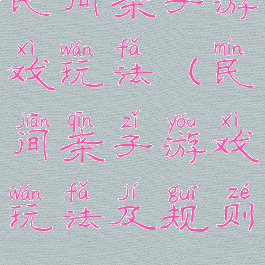 民间亲子游
xì wán fǎ mín
戏玩法（民
jiān qīn zǐ yóu xì
间亲子游戏
wán fǎ jí guī zé
玩法及规则